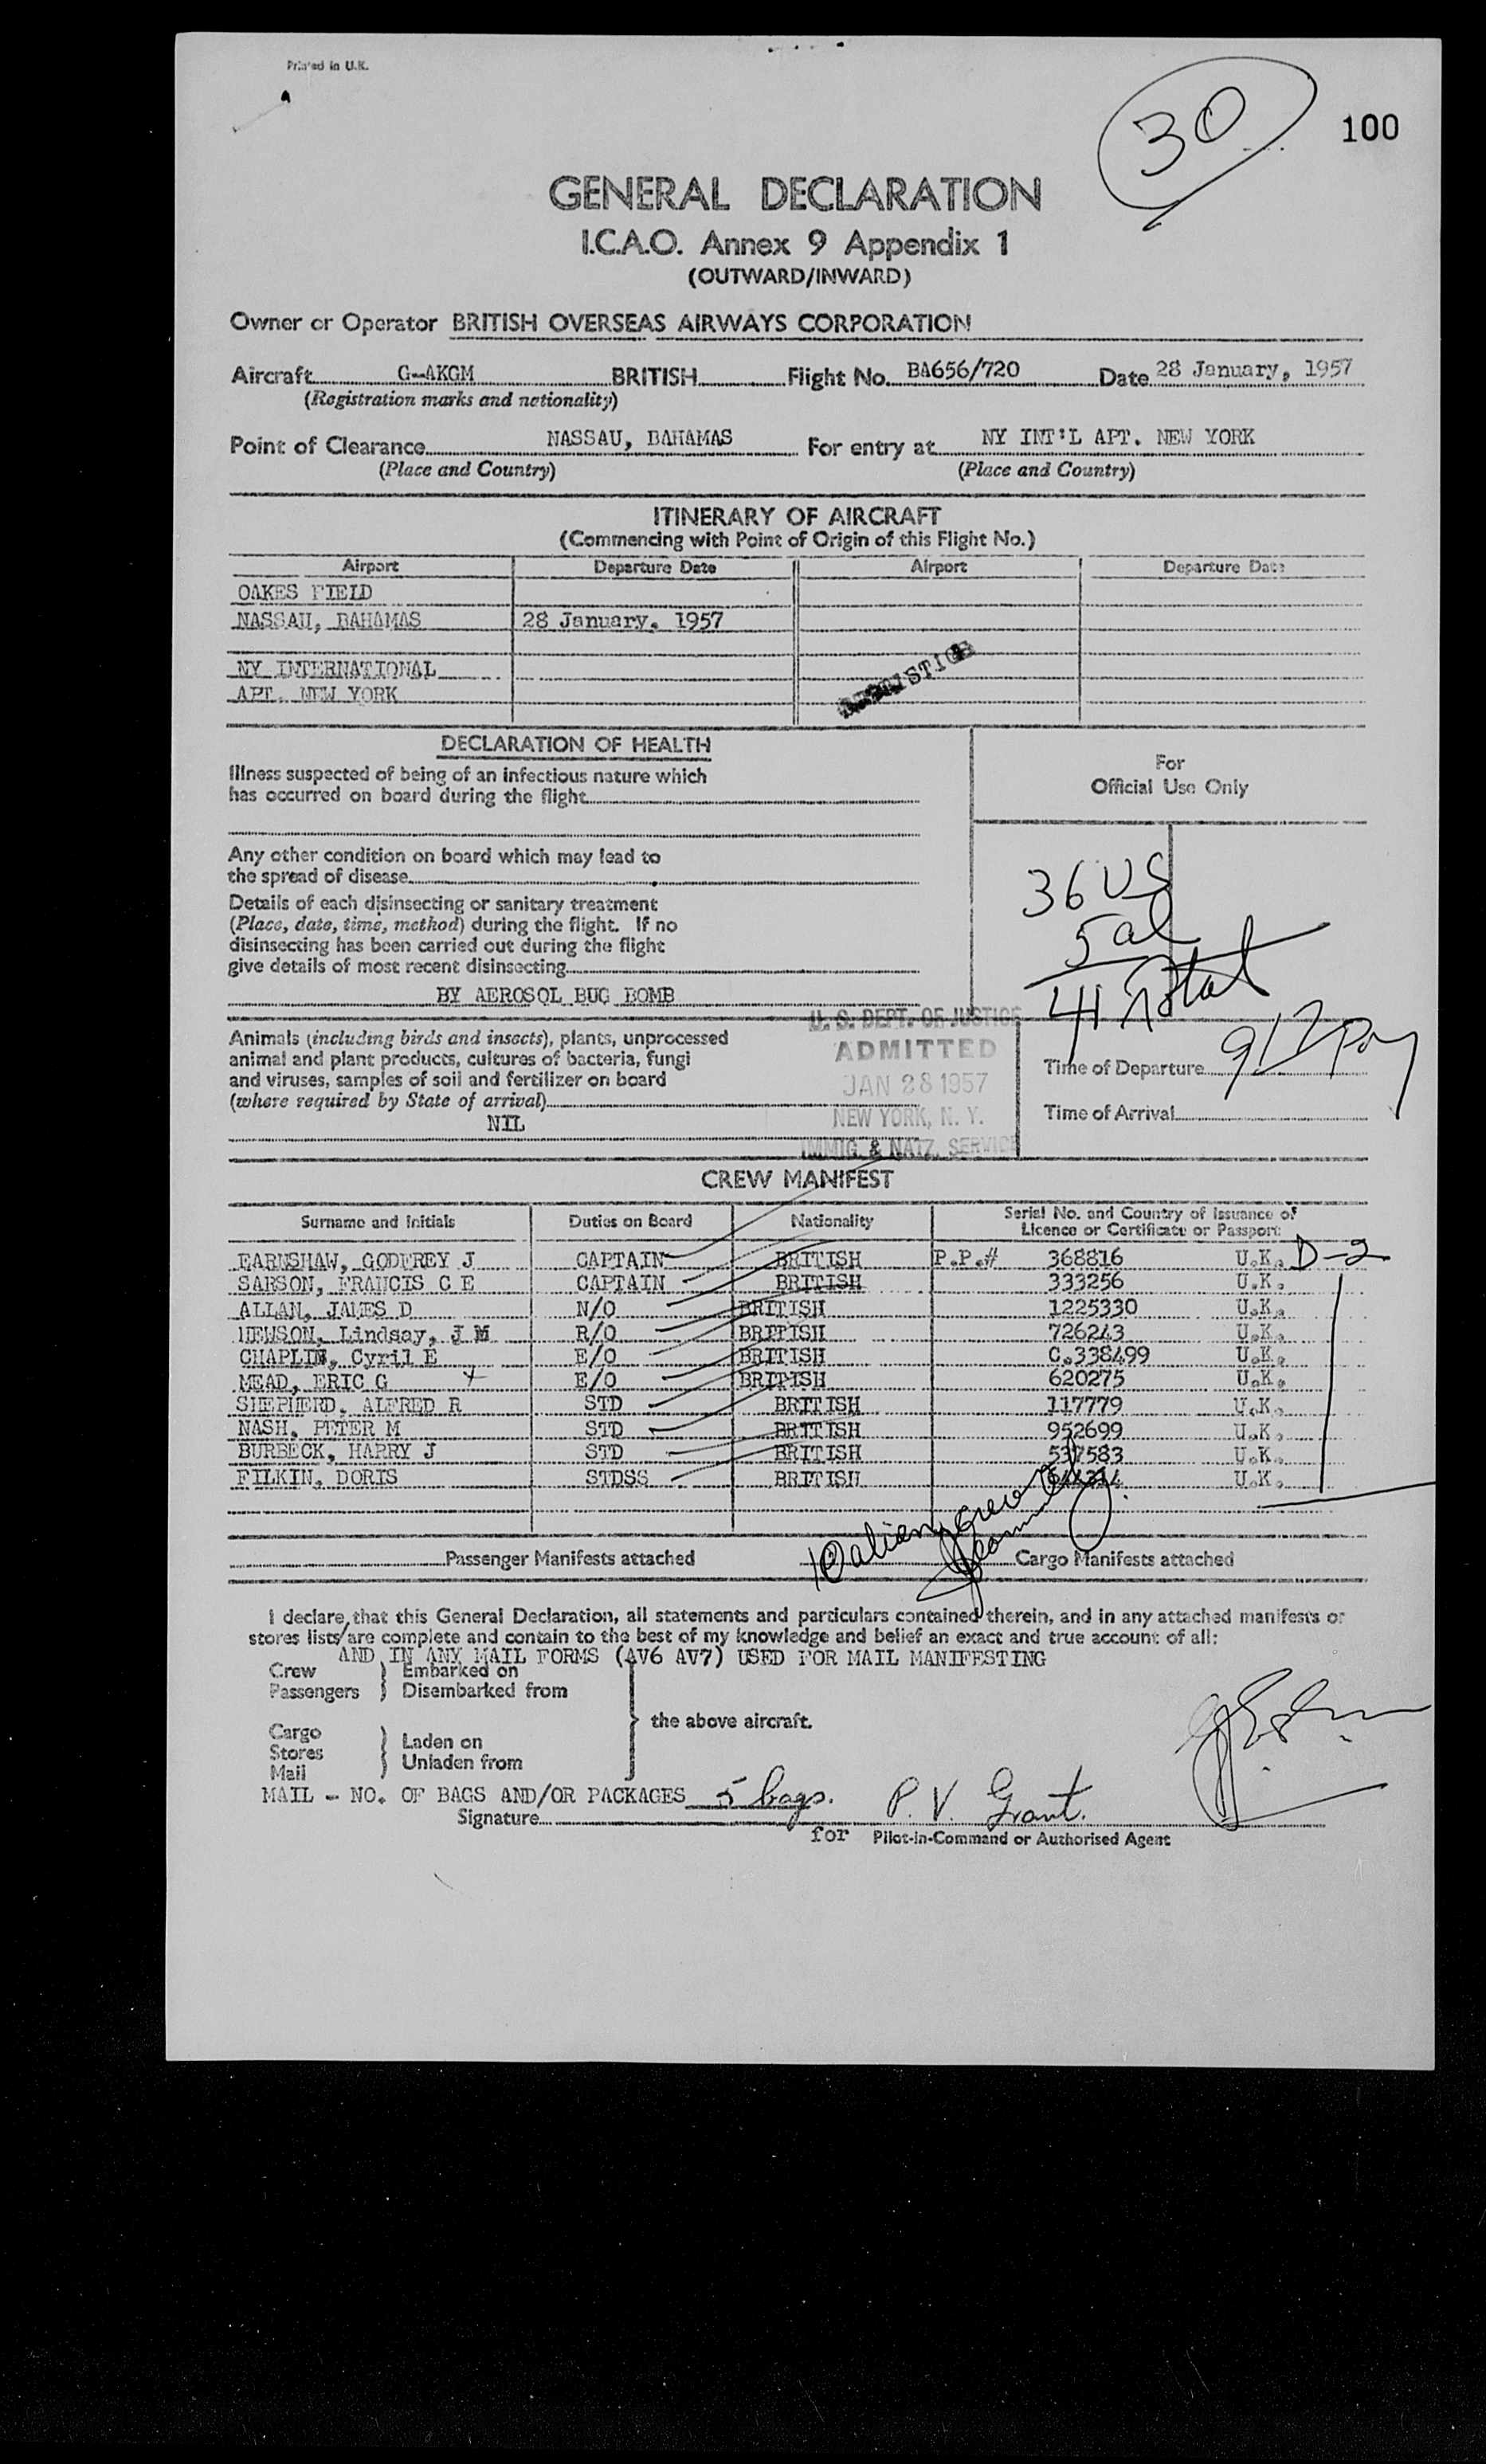 Printed in U.K.
30
100
GENERAL DECLARATION
I.C.A.O. Annex 9 Appendix 1
(OUTWARD/INWARD)
Owner or Operator BRITISH OVERSEAS AIRWAYS CORPORATION
Aircraft G-AKGM BRITISH Flight No. BA656/720 Date 28 January, 1957
(Registration marks and nationality)
Point of Clearance NASSAU, BAHAMAS For entry at NY INT'L APT. NEW YORK
(Place and Country) (Place and Country)
ITINERARY OF AIRCRAFT
(Commencing with Point of Origin of this Flight No.)
Airport Departure Date Airport Departure Date
OAKES FIELD
NASSAU, BAHAMAS 28 January, 1957
NY INTERNATIONAL
APT. NEW YORK
DECLARATION OF HEALTH
Illness suspected of being of an infectious nature which
has occurred on board during the flight
For
Official Use Only
Any other condition on board which may lead to
the spread of disease
Details of each disinsecting or sanitary treatment
(Place, date, time, method) during the flight. If no
disinsecting has been carried out during the flight
give details of most recent disinsecting
BY AEROSOL BUG BOMB
36 US
5 al
41 Total
Animals (including birds and insects), plants, unprocessed
animal and plant products, cultures of bacteria, fungi
and viruses, samples of soil and fertilizer on board
(where required by State of arrival)
NIL
U. S. DEPT. OF JUSTICE
ADMITTED
JAN 28 1957
NEW YORK, N. Y.
IMMIG. & NATZ. SERVICE
Time of Departure 912 PM
Time of Arrival
CREW MANIFEST
Surname and Initials Duties on Board Nationality Serial No. and Country of Issuance of
Licence or Certificate or Passport
EARNSHAW, GODFREY J CAPTAIN BRITISH P.P.# 368816 U.K. D-2
SARSON, FRANCIS C E CAPTAIN BRITISH 333256 U.K.
ALLAN, JAMES D N/O BRITISH 1225330 U.K.
HEWSON, Lindsay, J M R/O BRITISH 726243 U.K.
CHAPLIN, Cyril E E/O BRITISH C.338499 U.K.
MEAD, ERIC G E/O BRITISH 620275 U.K.
SHEPHERD, ALFRED R STD BRITISH 117779 U.K.
NASH, PETER M STD BRITISH 952699 U.K.
BURBECK, HARRY J STD BRITISH 537583 U.K.
FILKIN, DORIS STDSS BRITISH U.K.
10 alien crew
Passenger Manifests attached Cargo Manifests attached
I declare that this General Declaration, all statements and particulars contained therein, and in any attached manifests or
stores lists/are complete and contain to the best of my knowledge and belief an exact and true account of all:
AND IN ANY MAIL FORMS (AV6 AV7) USED FOR MAIL MANIFESTING
Crew Embarked on
Passengers Disembarked from
the above aircraft.
Cargo
Stores Laden on
Mail Unladen from
MAIL - NO. OF BAGS AND/OR PACKAGES 5 bags. P. V. Grant.
Signature
for Pilot-in-Command or Authorised Agent